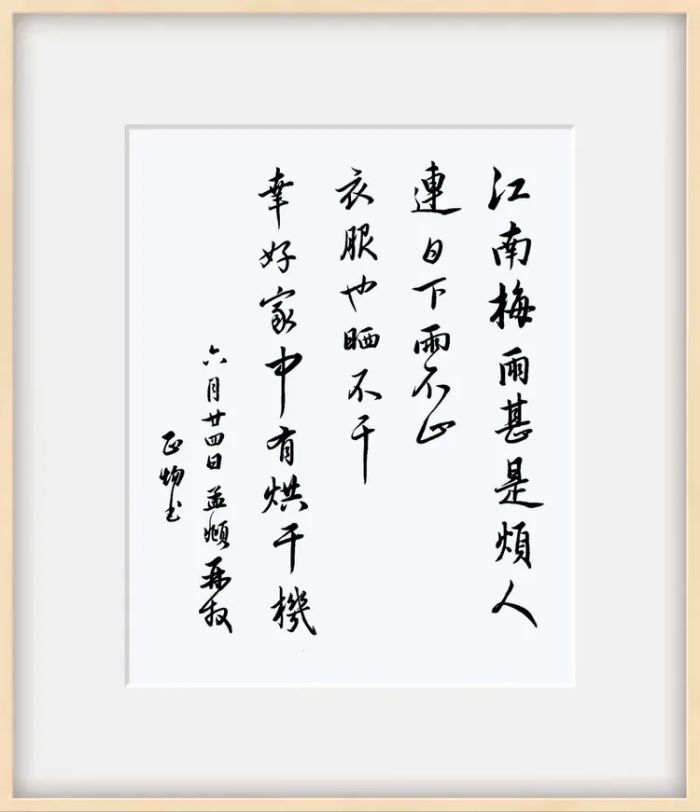 江南梅雨甚是煩人
連日下雨不止
衣服也晒不干
幸好家中有烘干機
六月廿四日孟頫
正书